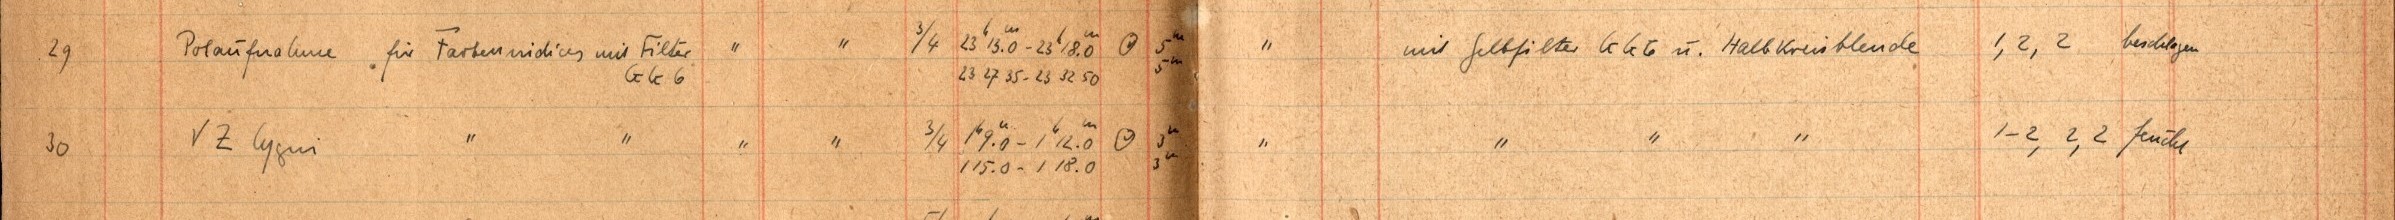 29 Polaufnahme für Farbenindices mit Filter " " 3/4 23ʰ13.0ᵐ - 23ʰ18.0ᵐ ☉ 5ᵐ " mit Gelbfilter GG6 u. Halbkreisblende 1, 2, 2 beschlagen
GG6 23 27 35 - 23 32 50 5ᵐ
30 √ Z Cygni " " " " 3/4 1ʰ9.0ᵐ - 1ʰ12.0ᵐ ☉ 3ᵐ " " " " 1-2, 2, 2 feucht
1 15.0 - 1 18.0 3ᵐ